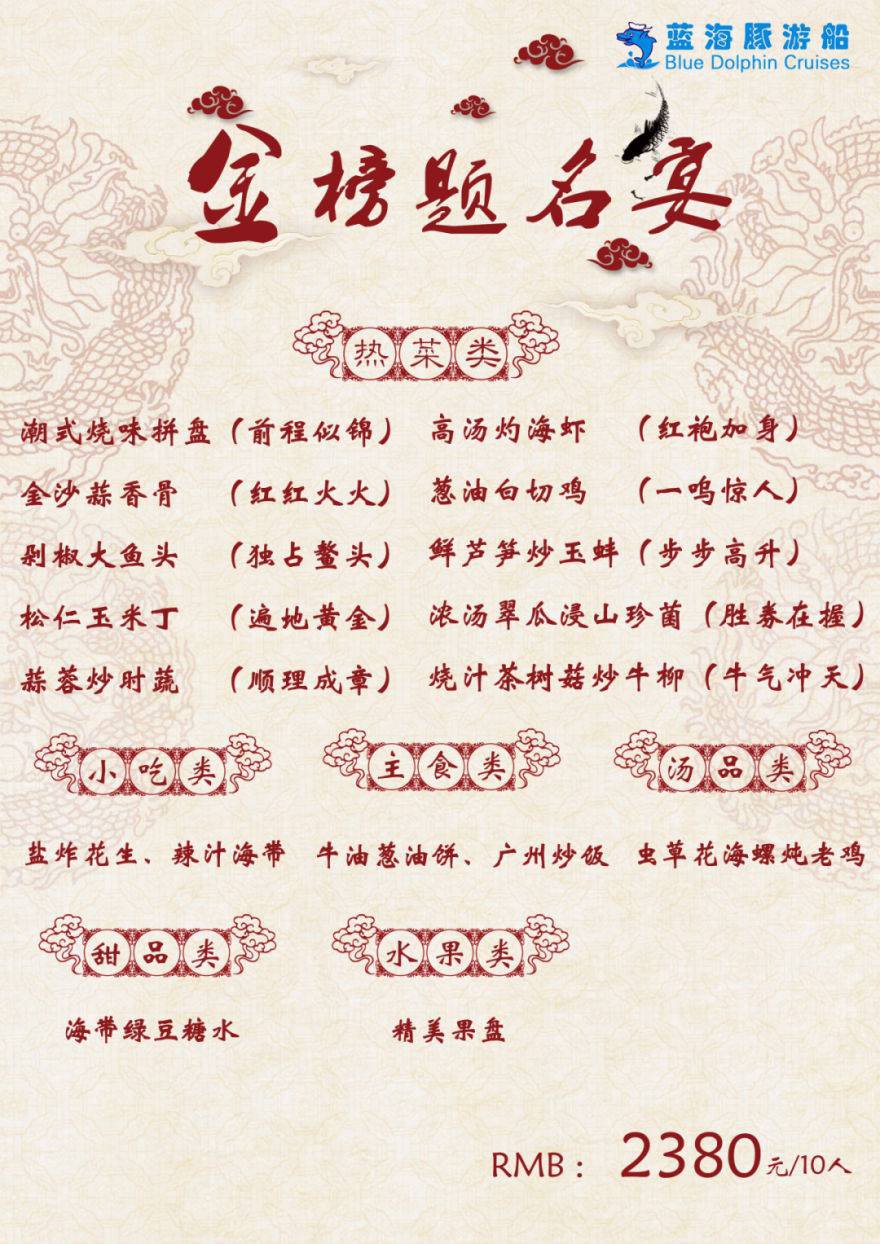 蓝海豚游船
Blue Dolphin Cruises
金榜题名宴
热菜类
潮式烧味拼盘（前程似锦） 高汤灼海虾 （红袍加身）
金沙蒜香骨 （红红火火） 葱油白切鸡 （一鸣惊人）
剁椒大鱼头 （独占鳌头） 鲜芦笋炒玉蚌（步步高升）
松仁玉米丁 （遍地黄金） 浓汤翠瓜浸山珍菌（胜券在握）
蒜蓉炒时蔬 （顺理成章） 烧汁茶树菇炒牛柳（牛气冲天）
小吃类 主食类 汤品类
盐炸花生、辣汁海带 牛油葱油饼、广州炒饭 虫草花海螺炖老鸡
甜品类 水果类
海带绿豆糖水 精美果盘
RMB： 2380元/10人